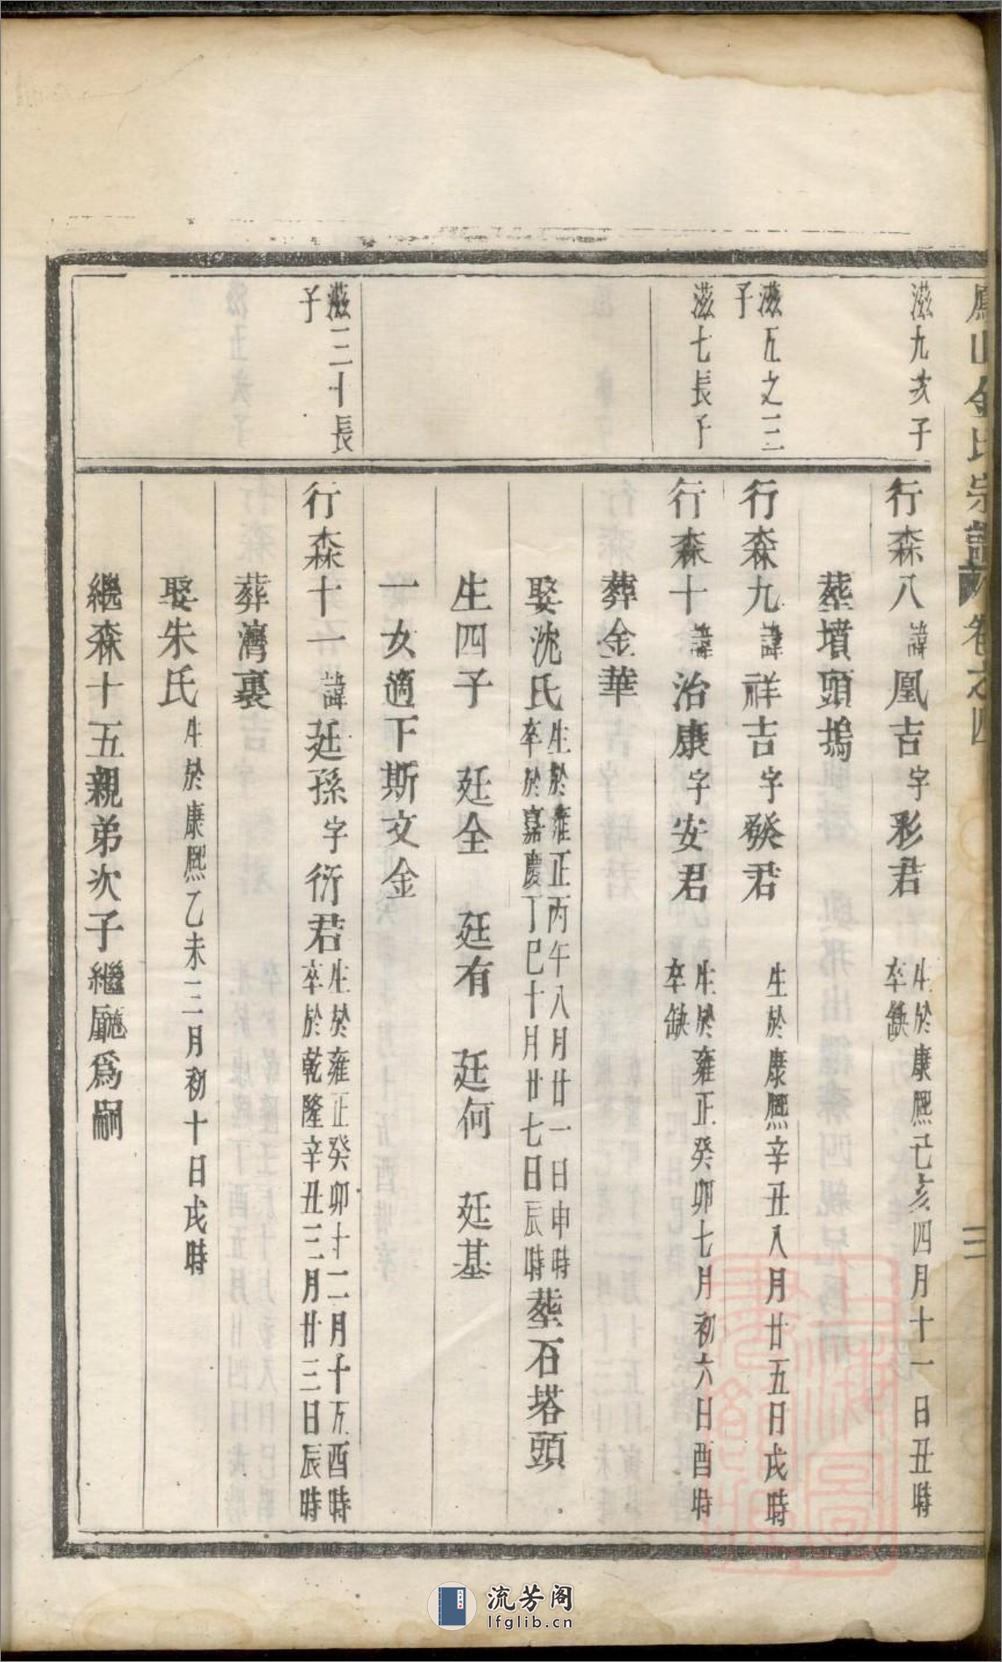 鳳山金氏宗譜 卷之四 三
滋九次子
行森八諱凰吉字彩君 生於康熙己亥四月十一日丑時
卒缺
葬墳頭塢
滋五之三
子
行森九諱祥吉字發君 生於康熙辛丑八月廿五日戌時
滋七長子
行森十諱治康字安君 生於雍正癸卯七月初六日酉時
卒缺
葬金華
娶沈氏 生於雍正丙午八月廿一日申時
卒於嘉慶丁巳十月廿七日辰時 葬石塔頭
生四子 廷全 廷有 廷何 廷基
一女適下斯文金
滋三十長
子
行森十一諱廷孫字衍君 生於雍正癸卯十二月十五酉時
卒於乾隆辛丑三月廿三日辰時
葬灣裏
娶朱氏 生於康熙乙未三月初十日戌時
繼森十五親弟次子繼廳為嗣
流芳阁
lfglib.cn